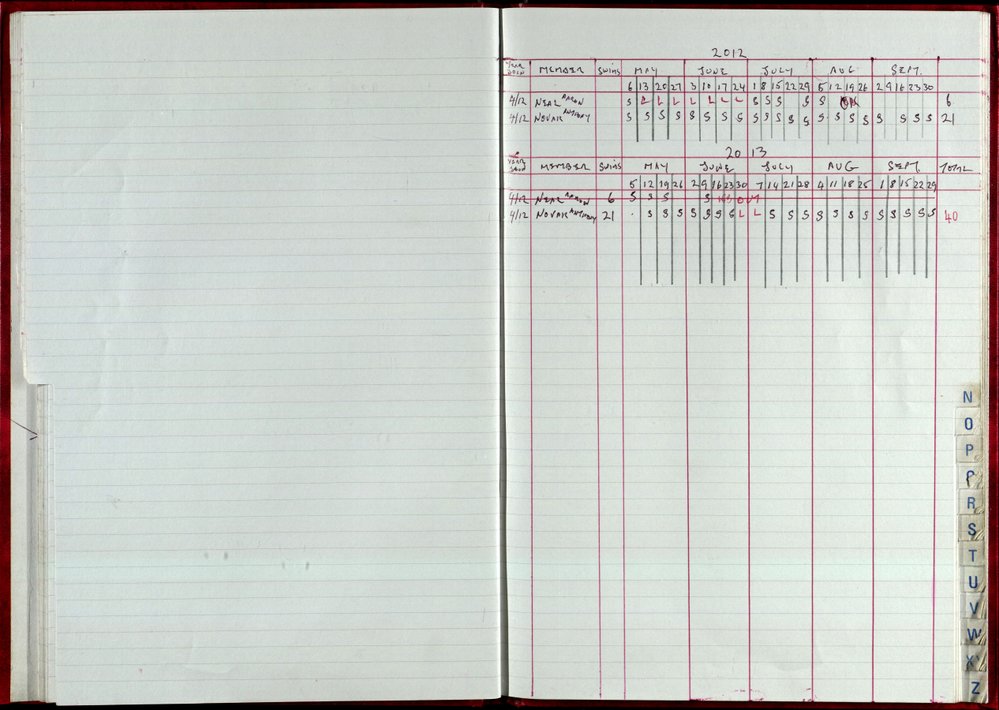 2012
YEAR JOIN MEMBER SWIMS MAY JUNE JULY AUG SEPT.
6 13 20 27 3 10 17 24 1 8 15 22 29 5 12 19 26 2 9 16 23 30
4/12 NEAL AARON S L L L L L L L S S S S S 6
4/12 NOVAK ANTHONY S S S S S S S S S S S S S S S S S S S S S 21
2013
YEAR JOIN MEMBER SWIMS MAY JUNE JULY AUG SEPT TOTAL
5 12 19 26 2 9 16 23 30 7 14 21 28 4 11 18 25 1 8 15 22 29
4/12 NEAL AARON 6 S S S S OUT
4/12 NOVAK ANTHONY 21 . S S S S S S S L L S S S S S S S S S S S S 40
N
O
P
R
S
T
U
V
W
X
Z